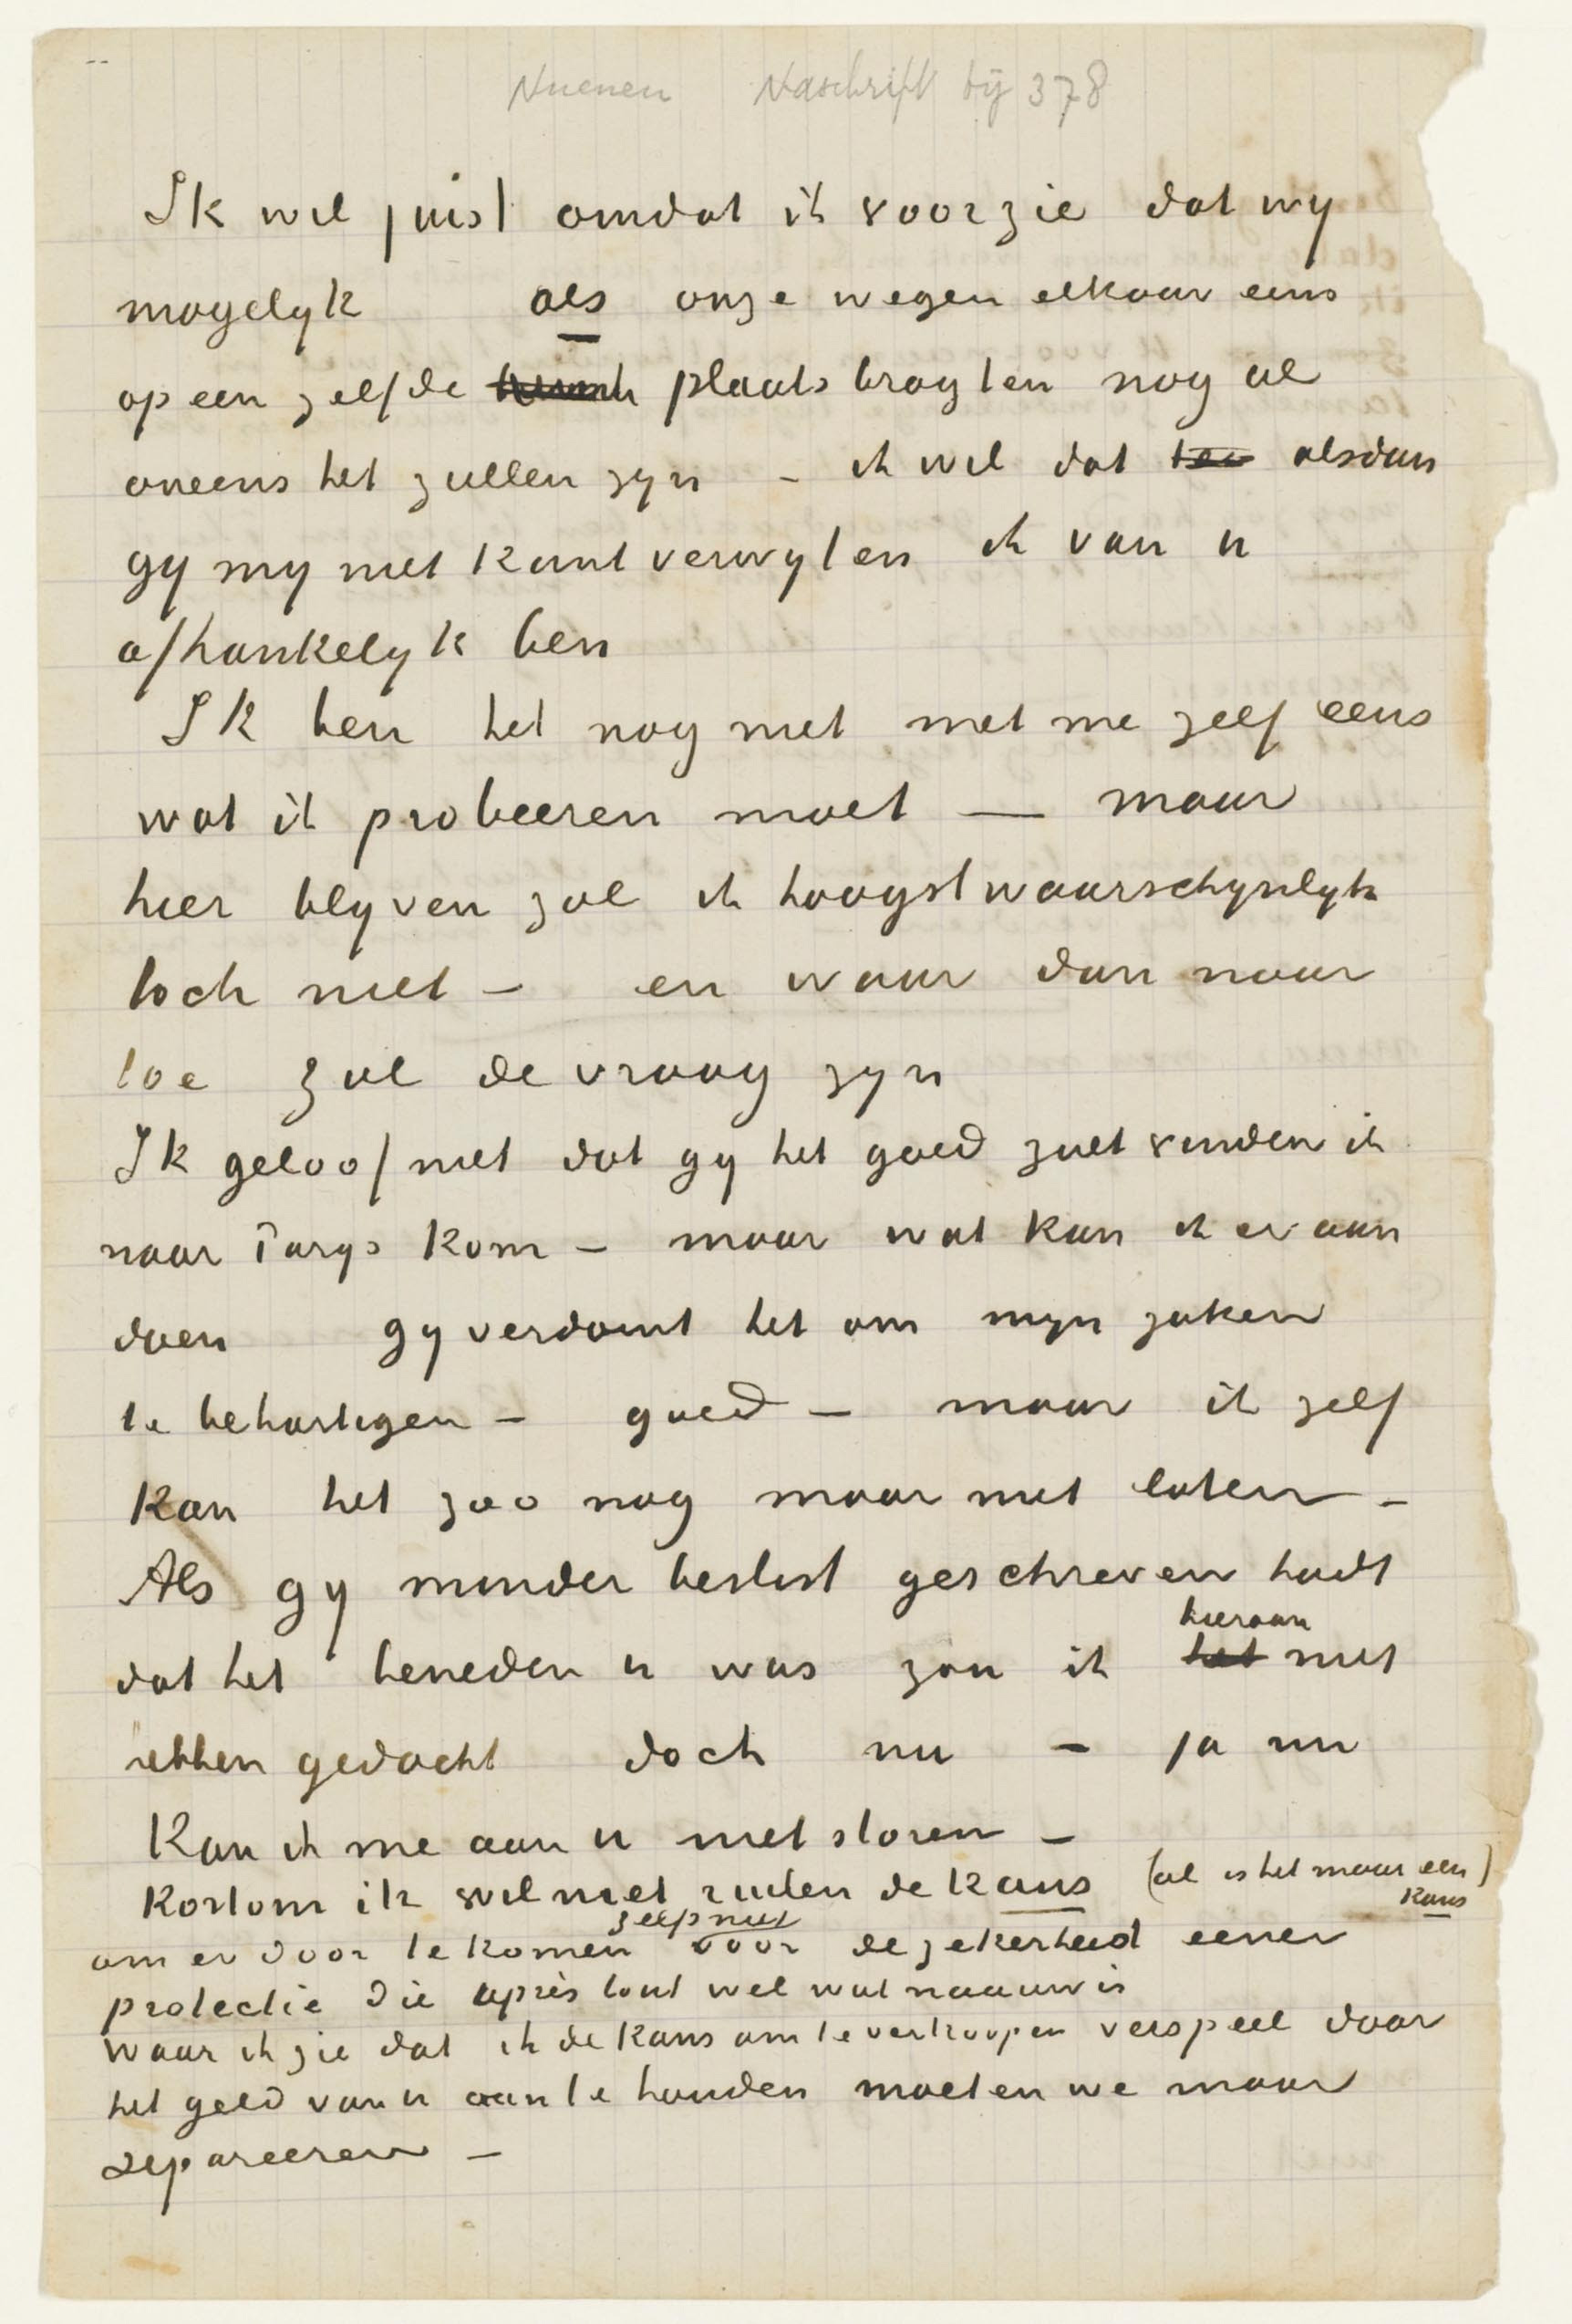 Nuenen Naschrift bij 378
Ik wil juist omdat ik voorzie dat wy
mogelyk als onze wegen elkaar eens
op een zelfde plaats bragten nog al
oneens het zullen zyn – ik wil dat alsdan
gy my niet kunt verwyten ik van u
afhankelyk ben
Ik ben het nog niet met me zelf eens
wat ik probeeren moet — maar
hier blyven zal ik hoogstwaarschynlyk
toch niet – en waar dan naar
toe zal de vraag zyn
Ik geloof niet dat gy het goed zult vinden ik
naar Parys kom – maar wat kan ik er aan
doen gy verdomt het om myn zaken
te behartigen – goed – maar ik zelf
kan het zoo nog maar niet laten –
Als gy minder beslist geschreven hadt
hieraan
dat het beneden u was zou ik het niet
hebben gedacht doch nu – ja nu
kan ik me aan u niet storen –
Kortom ik wil niet ruilen de kans (al is het maar een)
kans
zelfs niet
om er door te komen voor de zekerheid eener
protectie die après tout wel wat naauw is
waar ik zie dat ik de kans om te verkoopen verspeel door
het geld van u aan te houden moeten we maar
separeeren –